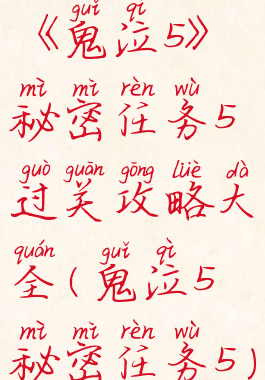 guǐ qì
《鬼泣5》
mì mì rèn wù
秘密任务5
guò guān gōng lüè dà
过关攻略大
quán guǐ qì
全(鬼泣5
mì mì rèn wù
秘密任务5)